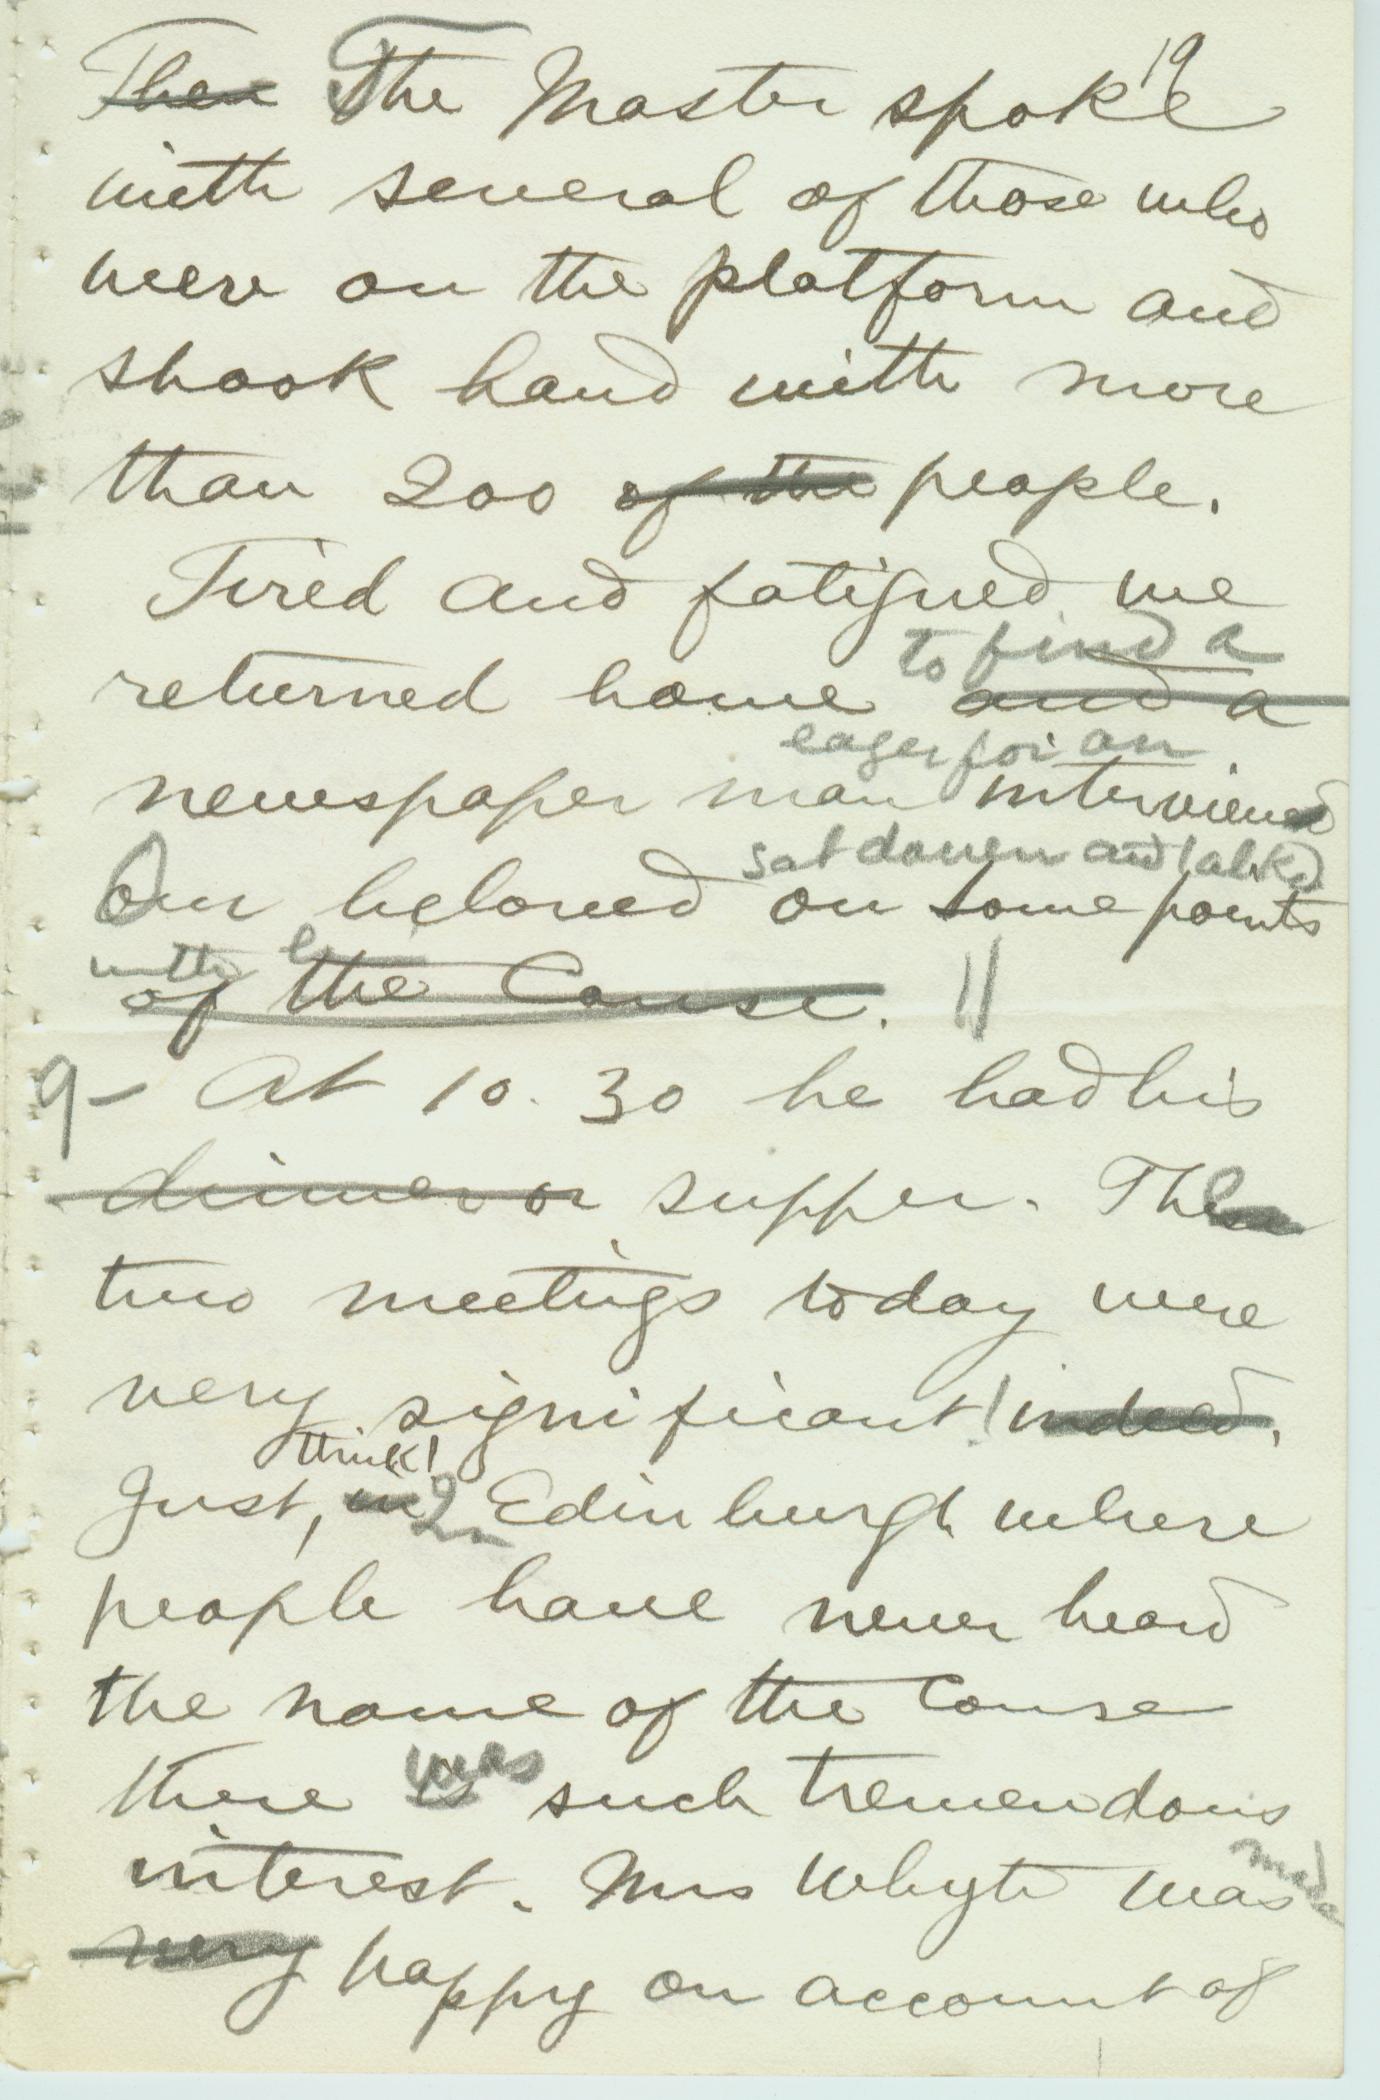 19
Then The Master spoke
with several of those who
were on the platform and
shook hand with more
than 200 of the people.
Tired and fatigued we
to find a
returned home and a
eager for an
newspaper man interviewed
sat down and talked
Our beloved on some points
with
of the Cause. //
9- At 10.30 he had his
dinner or supper. The
two meetings today were
very significant! indeed.
think!
Just, in In Edinburgh where
people have never heard
the name of the Cause
was
there is such tremendous
interest. Mrs Whyte was
made
very happy on account of